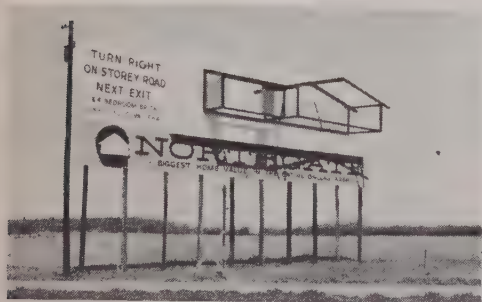 TURN RIGHT
ON STOREY ROAD
NEXT EXIT
NORTHGATE
BIGGEST HOME VALUE IN THE